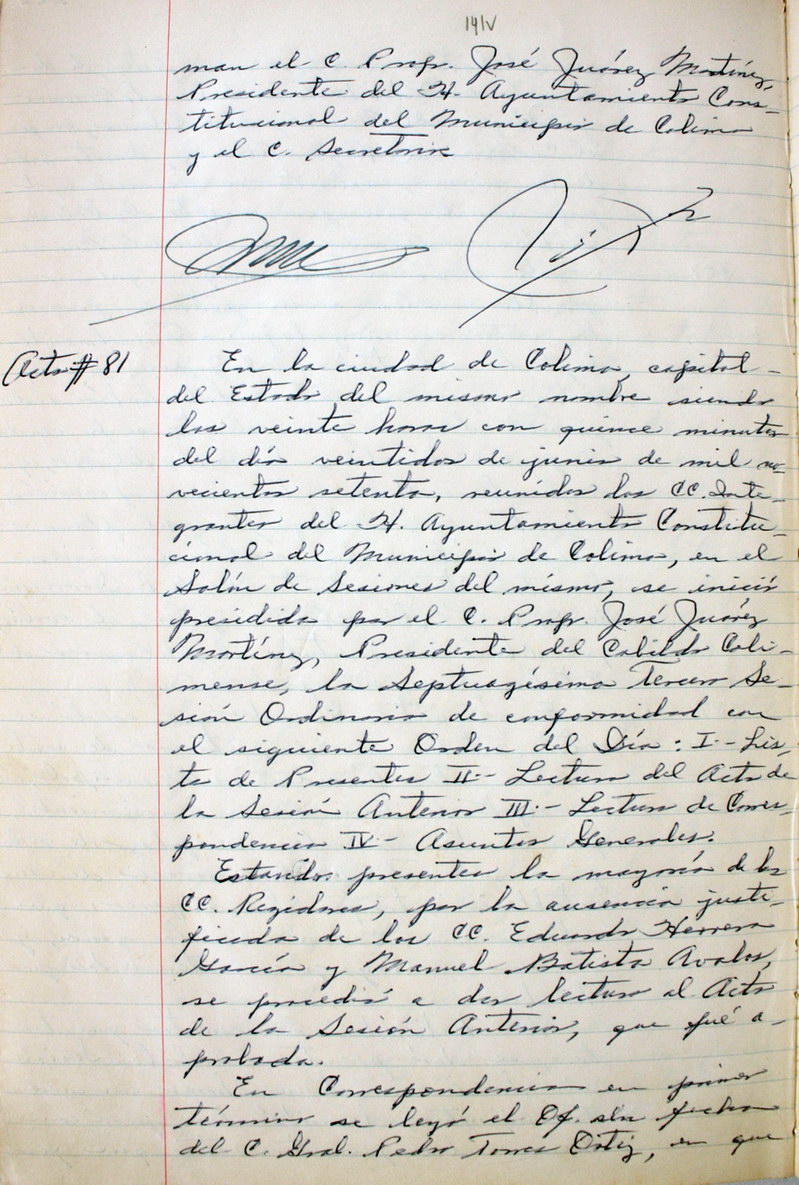 141v
man el C. Profr. José Juárez Martínez,
Presidente del H. Ayuntamiento Cons-
titucional del Municipio de Colima
y el C. Secretario
Acta # 81
En la ciudad de Colima, capital
del Estado del mismo nombre siendo
las veinte horas con quince minutos
del día veintidos de junio de mil no-
vecientos setenta, reunidos los CC. Inte-
grantes del H. Ayuntamiento Constitu-
cional del Municipio de Colima, en el
Salón de Sesiones del mismo, se inició
presidida por el C. Profr. José Juárez
Martínez, Presidente del Cabildo Coli-
mense, la Septuagésima Tercera Se-
sión Ordinaria de conformidad con
el siguiente Orden del Día: I.- Lis-
ta de Presentes II.- Lectura del Acta de
la Sesión Anterior III.- Lectura de Corres-
pondencia IV- Asuntos Generales.
Estando presentes la mayoría de los
CC. Regidores, por la ausencia justi-
ficada de los CC. Eduardo Herrera
García y Manuel Batista Avalos,
se procedió a dar lectura al Acta
de la Sesión Anterior, que fué a-
probada.
En Correspondencia en primer
término se leyó el Of. sin fecha
del C. Gral. Pedro Torres Ortiz, en que